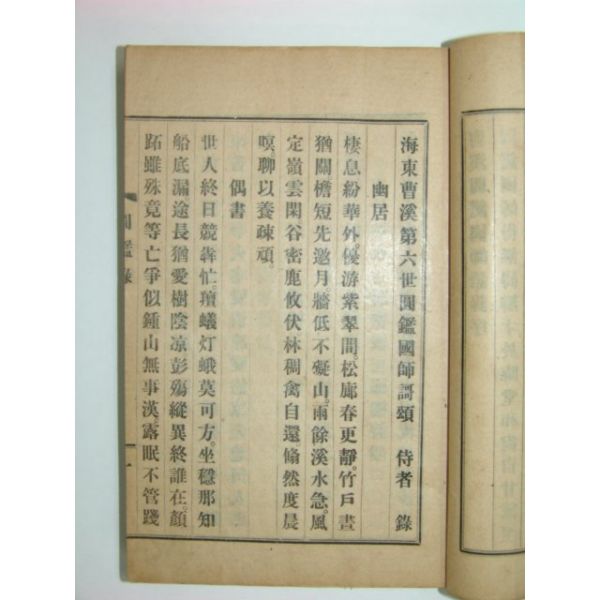 海東曹溪第六世圓鑑國師謌頌 侍者 錄
幽居
棲息紛華外。優游紫翠間。松廊春更靜。竹戶晝
猶關。檐短先邀月。牆低不礙山。雨餘溪水急。風
定嶺雲閑。谷密鹿攸伏。林稠禽自還。翛然度晨
暝。聊以養疎頑。
偶書
世人終日競奔忙。壇蟻灯蛾莫可方。坐穩那知
船底漏。途長猶愛樹陰凉。彭殤縱異終誰在。顏
跖雖殊竟等亡。爭似鍾山無事漢。露眠不管踐
圓鑑錄
一